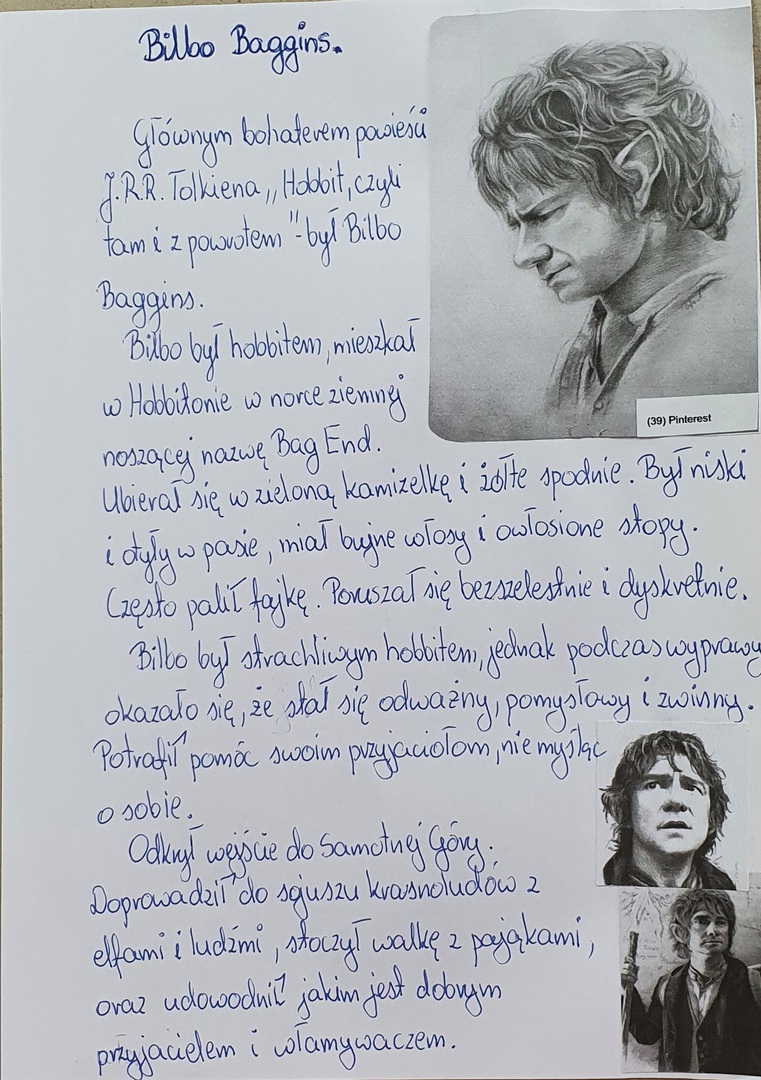 Bilbo Baggins.
Głównym bohaterem powieści
J.R.R. Tolkiena „Hobbit, czyli
tam i z powrotem" - był Bilbo
Baggins.
Bilbo był hobbitem, mieszkał
w Hobbitonie w norce ziemnej
noszącej nazwę Bag End.
(39) Pinterest
Ubierał się w zieloną kamizelkę i żółte spodnie. Był niski
i otyły w pasie, miał bujne włosy i owłosione stopy.
Często palił fajkę. Poruszał się bezszelestnie i dyskretnie.
Bilbo był strachliwym hobbitem, jednak podczas wyprawy
okazało się, że stał się odważny, pomysłowy i zwinny.
Potrafił pomóc swoim przyjaciołom, nie myśląc
o sobie.
Odkrył wejście do Samotnej Góry.
Doprowadził do sojuszu krasnoludów z
elfami i ludźmi, stoczył walkę z pająkami,
oraz udowodnił jakim jest dobrym
przyjacielem i włamywaczem.